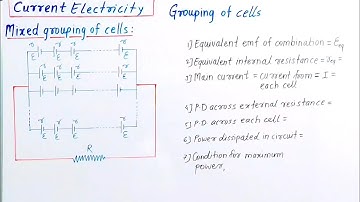 Current Electricity
Grouping of cells
Mixed grouping of cells:
r r r
E E E
r r r
E E E
r r r
E E E
R
1) Equivalent emf of combination = Eeq
2) Equivalent internal resistance = req =
3) Main current = current from = I =
each cell
4) P.D across external resistance =
5) P.D across each cell =
6) Power dissipated in circuit =
7) Condition for maximum
power,